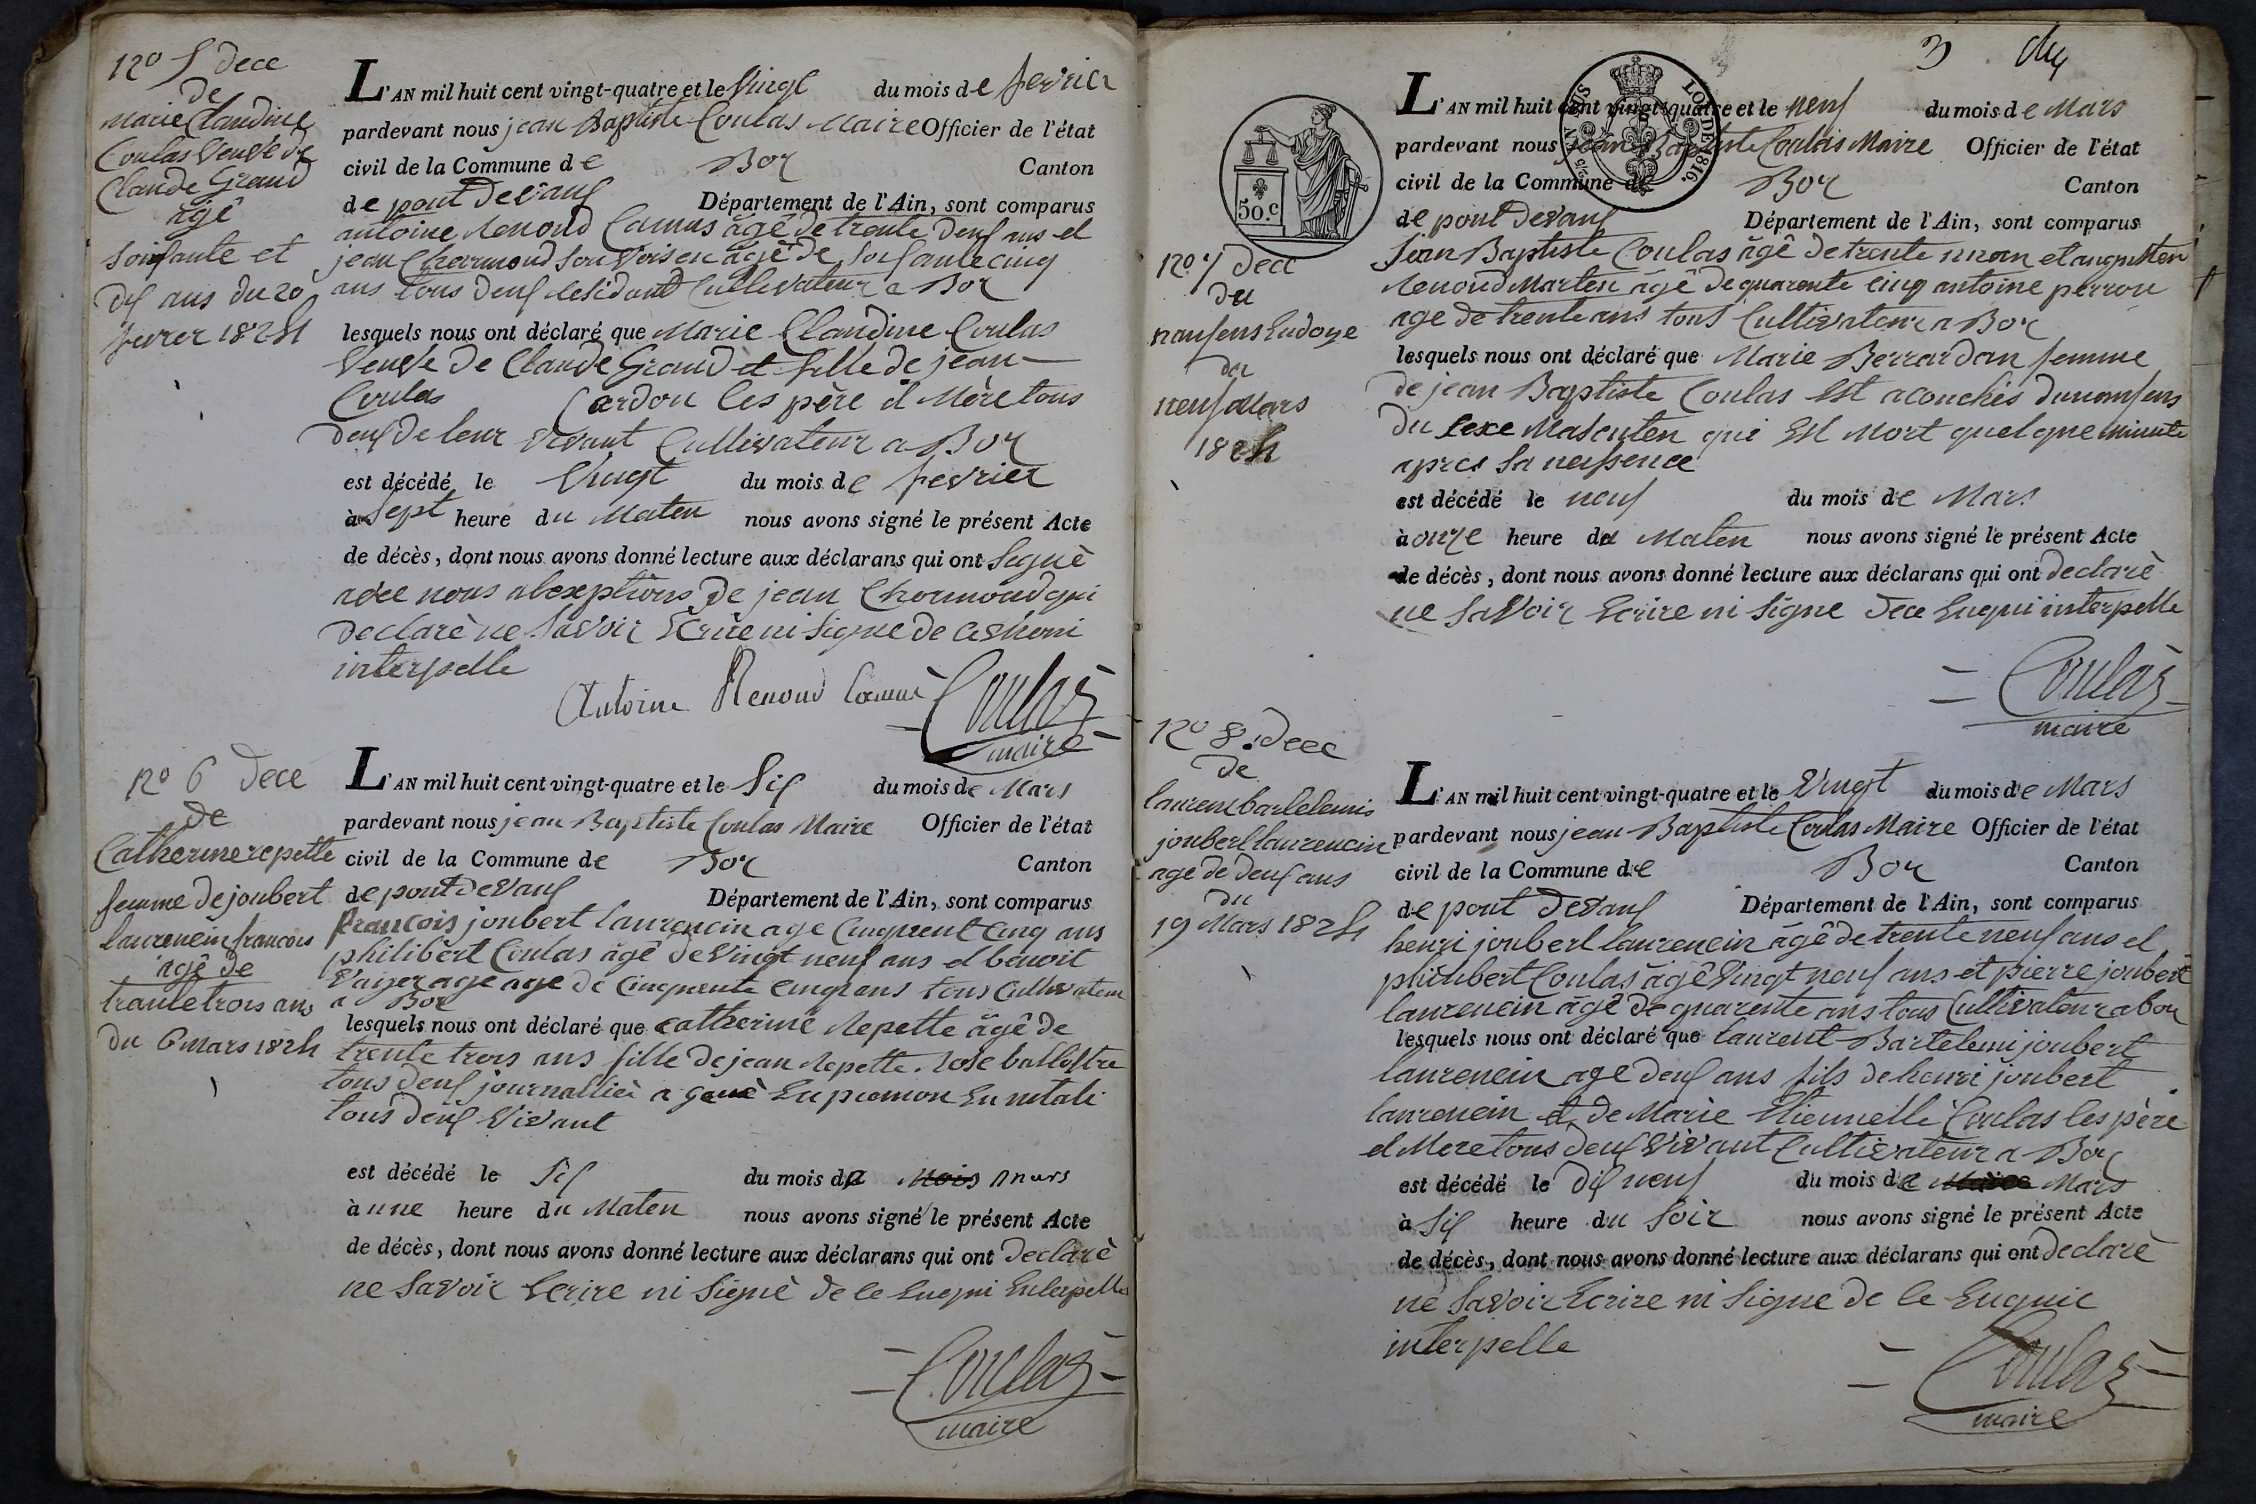 N.o 5 dece
de
marie Claudine
Coulas veuve de
Claude Graud
âgê
soisante et
dix ans du 20
fevrer 1824
L'AN mil huit cent vingt-quatre et le vingt du mois de fevrier
pardevant nous jean Baptiste Coulas Maire Officier de l'état
civil de la Commune de Boz Canton
de pont devaux Département de l'Ain, sont comparus
antoine Renoud Camus âgê de trente deux ans et
jean Charmond son voisen âgê de soisante cinq
ans tous deux residant Cultivateur a Boz
lesquels nous ont déclaré que Marie Claudine Coulas
veuve de Claude Graud et fille de jean
Coulas Cardon les père et Mère tous
deux de leur vivant Cultivateur a Boz
est décédé le vingt du mois de fevrier
à sept heure du Maten nous avons signé le présent Acte
de décès, dont nous avons donné lecture aux déclarans qui ont signè
avec nous de jean Charmond qui
declarè ne savoir Ecrire ni signe de
interpelle
Antoine Renoud Camus Coulas
maire
N.o 6 dece
de
Catherine repette
femme de joubert
laurencin francois
âgê de
trante trois ans
du 6 mars 1824
L'AN mil huit cent vingt-quatre et le six du mois de Mars
pardevant nous jean Baptiste Coulas Maire Officier de l'état
civil de la Commune de Boz Canton
de pont devaux Département de l'Ain, sont comparus
francois joubert laurencin age Cinquent Cinq ans
philibert Coulas âgê de vingt neuf ans et benoit
age de Cinquente Cinq ans tous Cultivateur
a Boz
lesquels nous ont déclaré que Catherine Repette âgê de
trente trois ans fille de jean Repette. rose
tous deux journallier a En En
tous deux vivant
est décédé le six du mois de Mois mars
à une heure du Maten nous avons signé le présent Acte
de décès, dont nous avons donné lecture aux déclarans qui ont declarè
ne savoir Ecrire ni signè de ce Enqui Enterpelle
Coulas
maire
3
L'AN mil huit cent vingt-quatre et le neuf du mois de Mars
pardevant nous jean Baptiste Coulas Maire Officier de l'état
civil de la Commune de Boz Canton
de pont devaux Département de l'Ain, sont comparus
50.c
LOI DE 1816.
N.o 7 dece
du
naufens
du
neuf Mars
1824
jean Baptiste Coulas âgê de trente et
Renoud Marten âgê de quarente cinq antoine perron
age de trente ans tous Cultivateur a Boz
lesquels nous ont déclaré que Marie Berrardan femme
de jean Baptiste Coulas Est acouchés
du sexe Masculen qui Est Mort quelque minute
apres sa nessence
est décédé le neuf du mois de Mars
à onze heure du Maten nous avons signé le présent Acte
de décès, dont nous avons donné lecture aux déclarans qui ont declarè
ne savoir Ecrire ni signe dece Enqui interpelle
Coulas
maire
N.o 8. dece
de
laurent bartelemis
joubert laurencin
age de deux ans
du
19 Mars 1824
L'AN mil huit cent vingt-quatre et le vingt du mois de Mars
pardevant nous jean Baptiste Coulas Maire Officier de l'état
civil de la Commune de Boz Canton
de pont devaux Département de l'Ain, sont comparus
henri joubert laurencin âgê de trente neuf ans et
philibert Coulas âgê vingt neuf ans et pierre joubert
laurencin âgê de quarente ans tous Cultivateur a boz
lesquels nous ont déclaré que laurent Bartelemi joubert
laurencin age deux ans fils de henri joubert
laurencin et de Marie Etiennette Coulas les père
et Mere tous deux vivant Cultivateur a Boz
est décédé le dix neuf du mois de Mars
à six heure du soir nous avons signé le présent Acte
de décès, dont nous avons donné lecture aux déclarans qui ont declarè
ne savoir Ecrire ni signe de ce Enquie
interpelle
Coulas
maire